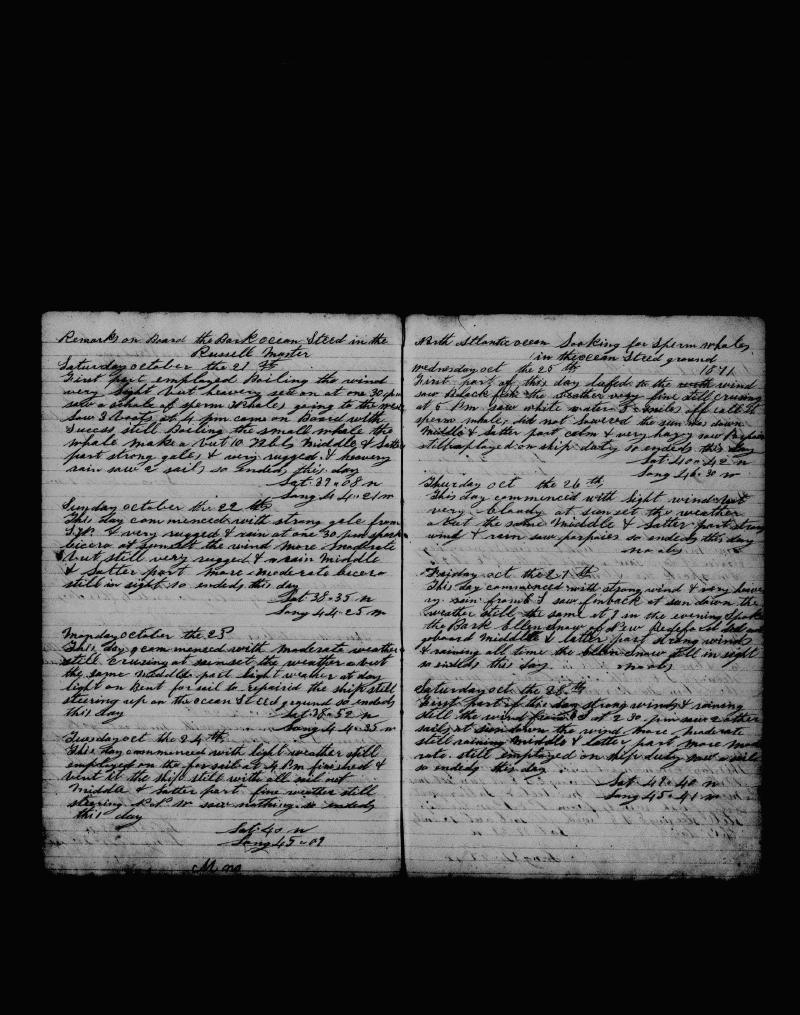 Remarks on Board the Bark ocean Steed in the
Russell Master
Saturday october the 21 th
First part employed Boiling the wind
very light but heavery set on at one 30 pm
saw a whale of sperm whales going to the
saw 3 boats at 4 pm came on Board with
Success still Boiling the small whale the
whale make a but 10 bbls Middle & latter
part strong gales & very rugged & heavery
rain saw 2 sails so endeds this day
Lat 37 08 n
Long 44 21 w
Sunday october the 22 th
This day commenced with strong gale from
& very rugged & rain at one 30 pm spoke
bicero at sunset the wind more moderate
but still very rugged & rain middle
& latter part more moderate becero
still in sight so endeds this day
Lat 38 35 n
Long 44 25 w
Monday october the 23
This day commensed with moderate weather
still crusing at sunset the weather a but
the same middle part light weaher at day
light on bent for sail to repaired the ship still
steering up on the ocean Steed ground so endeds
this day Lat 38 52 n
Long 44 35 w
Tuesday oct the 24 th
This day commenced with light weather still
employed on the for sail at 4 Pm finished &
bent it the ship still with all sail out
Middle & latter part fine weather still
stearing saw nothing so endeds
this day
Lat 40 n
Long 45 09
North Atlantic ocean Looking for sperm whales
in the ocean Steed ground
Wednesday oct the 25 th 1871
First part of this day lufed to the wind
saw black fish the weather very fine still crusing
at 5 Pm saw white water 3 miles off call it
sperm whales did not lowered the sun was down
Middle & Latter part calm & very hazy saw
still employed on ship duty so endeds this day
Lat 40 42 n
Long 46 30 w
Thurday oct the 26 th
This day commenced with light wind but
very cloudy at sun set the weather
a but the same Middle & Latter part strong
wind & rain saw porpoies so endeds this day
no obs
Friday oct the 27 th
This day commenced with strong wind & very heave
ry rain from saw finback at sun down the
weather still the same at 7 in the evening Spoke
the Bark Ellen Snow of New Bedeford
goboard Middle & latter part strong wind
& raining all time the Ellen Snow still in sight
so endeds this day no obs
Saturday oct the 28 th
First part of this day strong winds & raining
still the wind from at 2 30 pm saw 2 other
sails at sun down the wind more moderate
still raining Middle & Latter part more mod
rate still employed on ship duty saw a sail
so endeds this day
Lat 41 40 n
Long 45 41 w